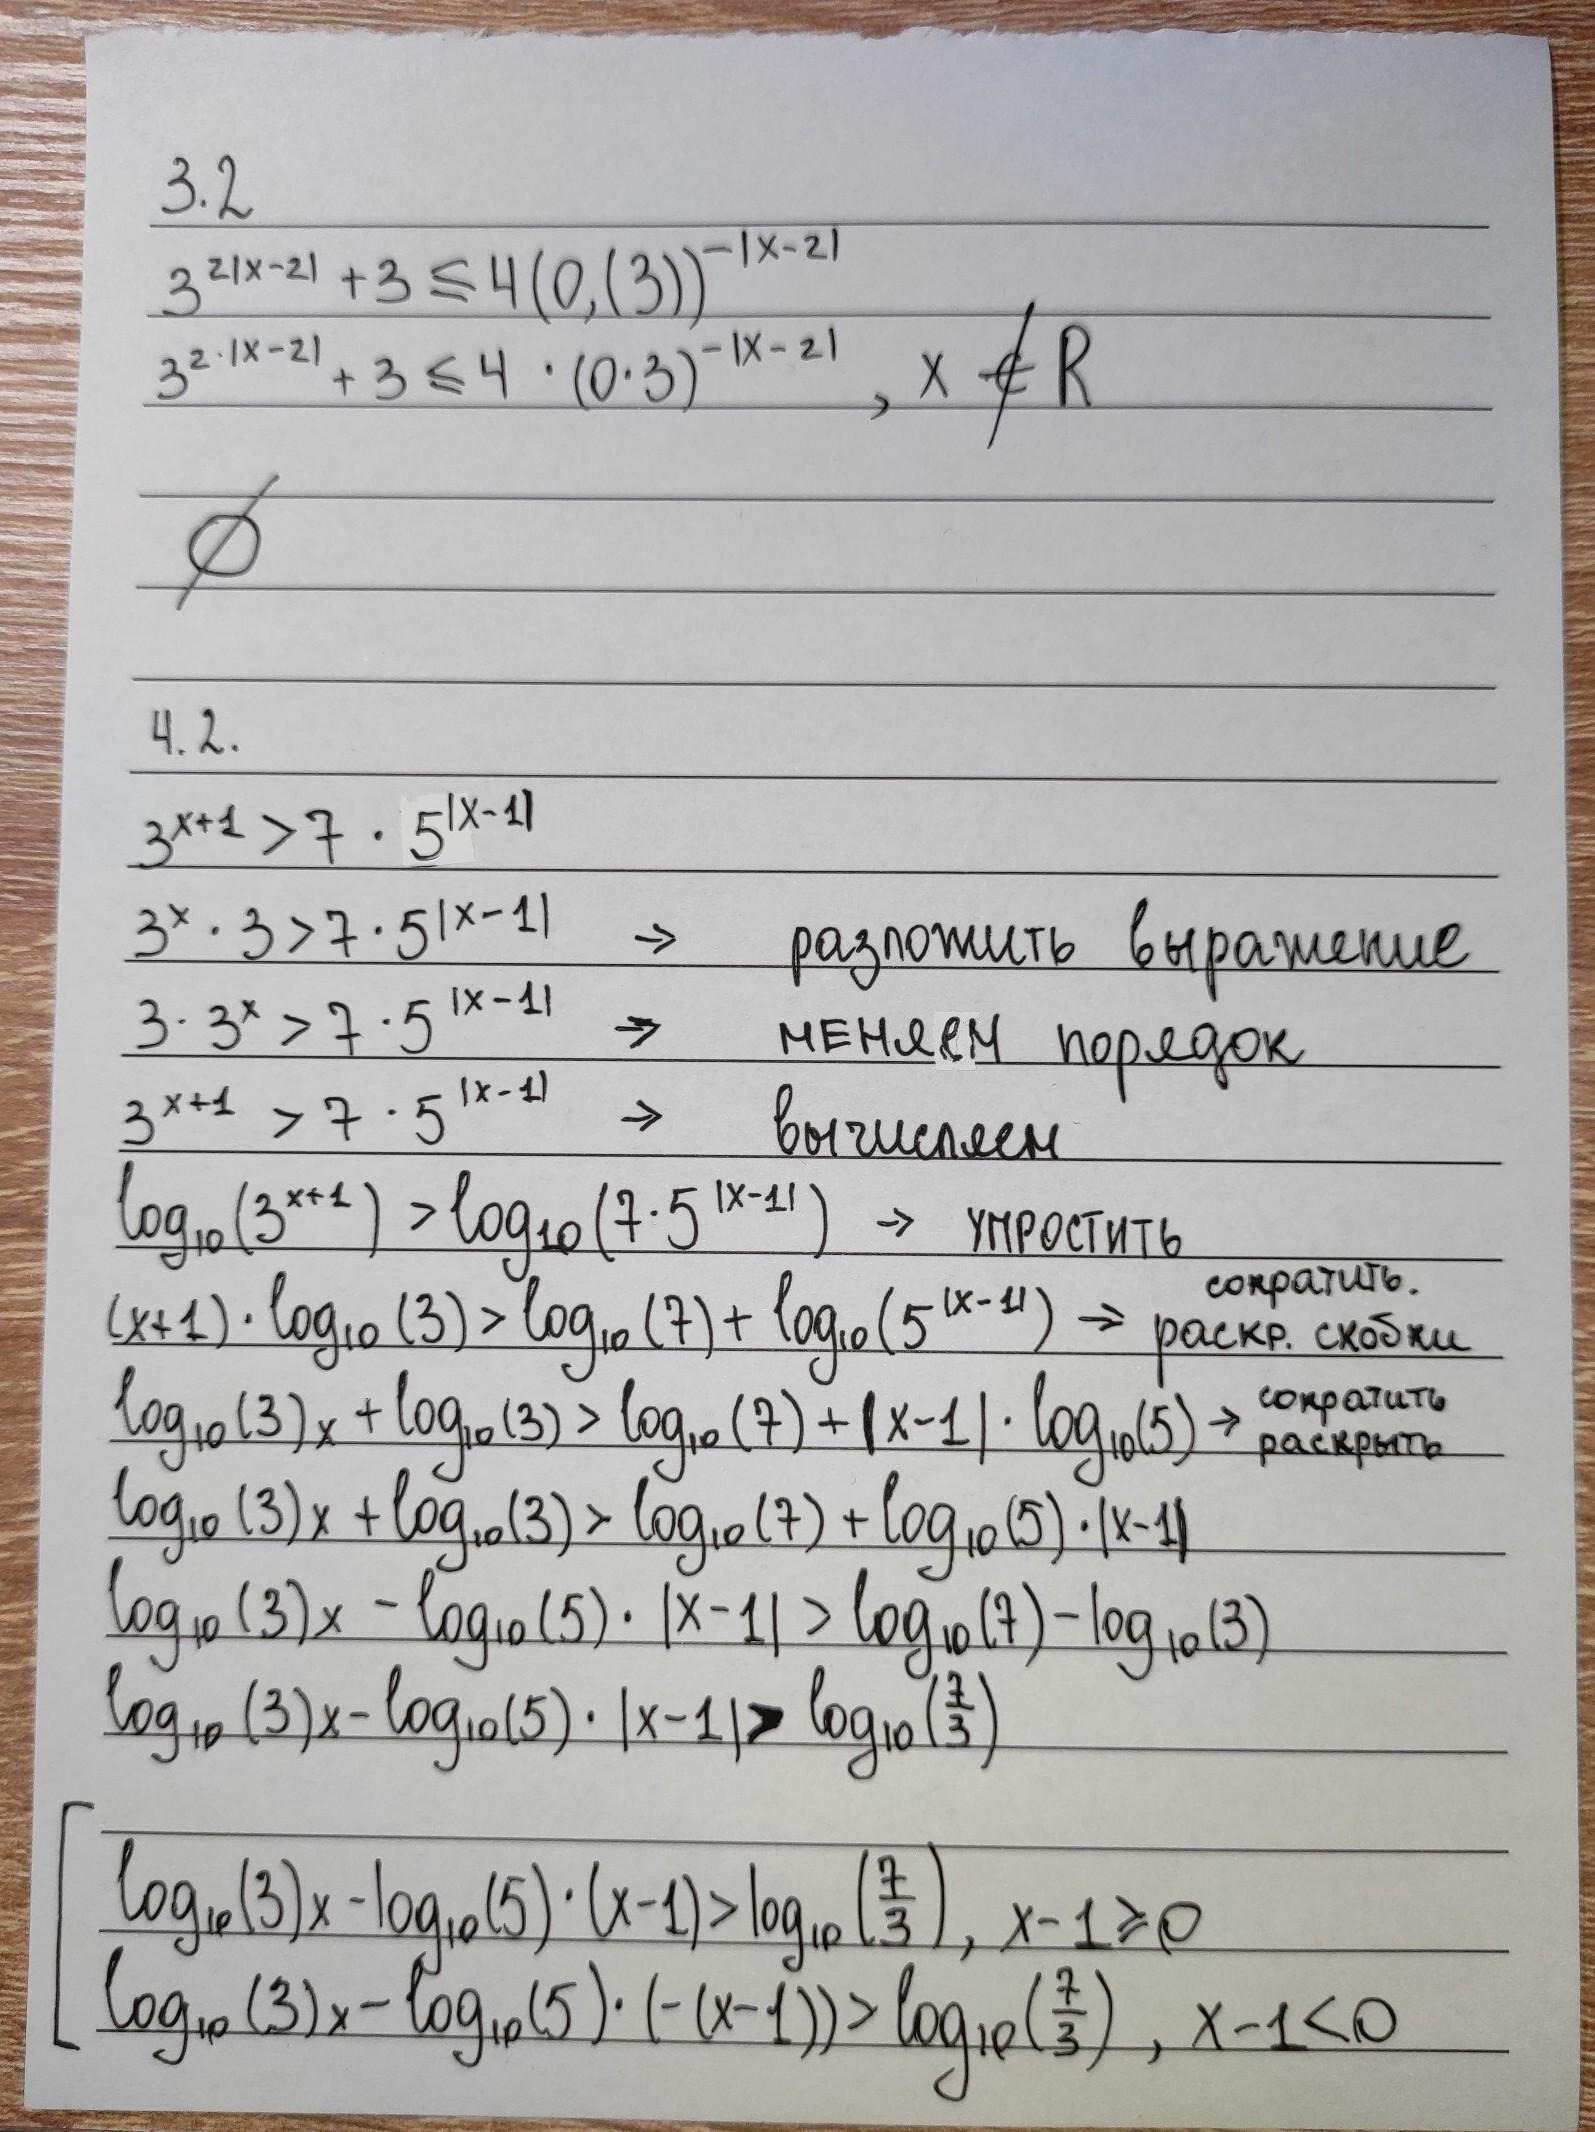 3.2
3^{2|x-2|} + 3 ≤ 4(0,(3))^{-|x-2|}
3^{2·|x-2|} + 3 ≤ 4 · (0·3)^{-|x-2|}, x ∉ R
∅
4.2.
3^{x+1} > 7 · 5^{|x-1|}
3^x · 3 > 7 · 5^{|x-1|} → разложить выражение
3 · 3^x > 7 · 5^{|x-1|} → меняем порядок
3^{x+1} > 7 · 5^{|x-1|} → вычисляем
log₁₀(3^{x+1}) > log₁₀(7·5^{|x-1|}) → упростить
(x+1) · log₁₀(3) > log₁₀(7) + log₁₀(5^{|x-1|}) → сократить. раскр. скобки
log₁₀(3)x + log₁₀(3) > log₁₀(7) + |x-1| · log₁₀(5) → сократить раскрыть
log₁₀(3)x + log₁₀(3) > log₁₀(7) + log₁₀(5) · |x-1|
log₁₀(3)x - log₁₀(5) · |x-1| > log₁₀(7) - log₁₀(3)
log₁₀(3)x - log₁₀(5) · |x-1| > log₁₀(7/3)
[ log₁₀(3)x - log₁₀(5) · (x-1) > log₁₀(7/3), x-1 ≥ 0
log₁₀(3)x - log₁₀(5) · (-(x-1)) > log₁₀(7/3), x-1 < 0